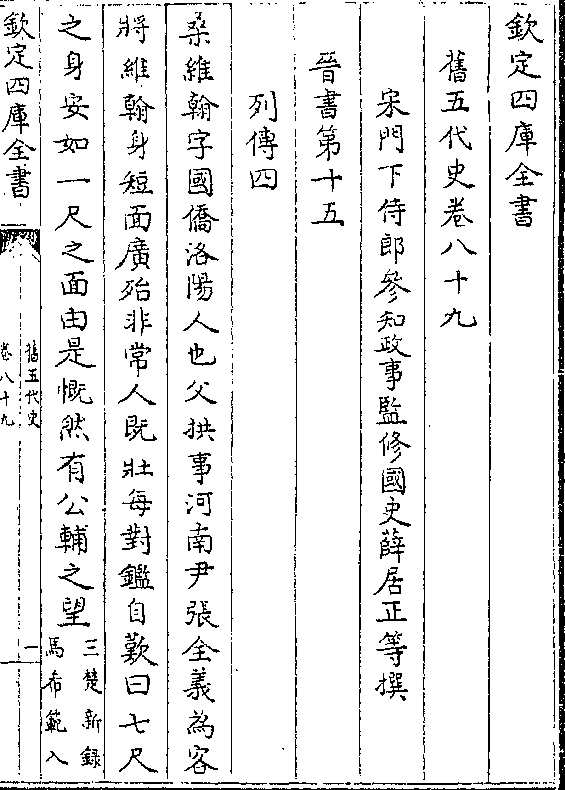 欽定四庫全書
舊五代史卷八十九
宋門下侍郎參知政事監修國史薛居正等撰
晉書第十五
列傳四
桑維翰字國僑洛陽人也父拱事河南尹張全義為客
將維翰身短面廣殆非常人既壯每對鑑自歎曰七尺
之身安如一尺之面由是慨然有公輔之望
三楚新録
馬希範入
欽定四庫全書
舊五代史
卷八十九
一